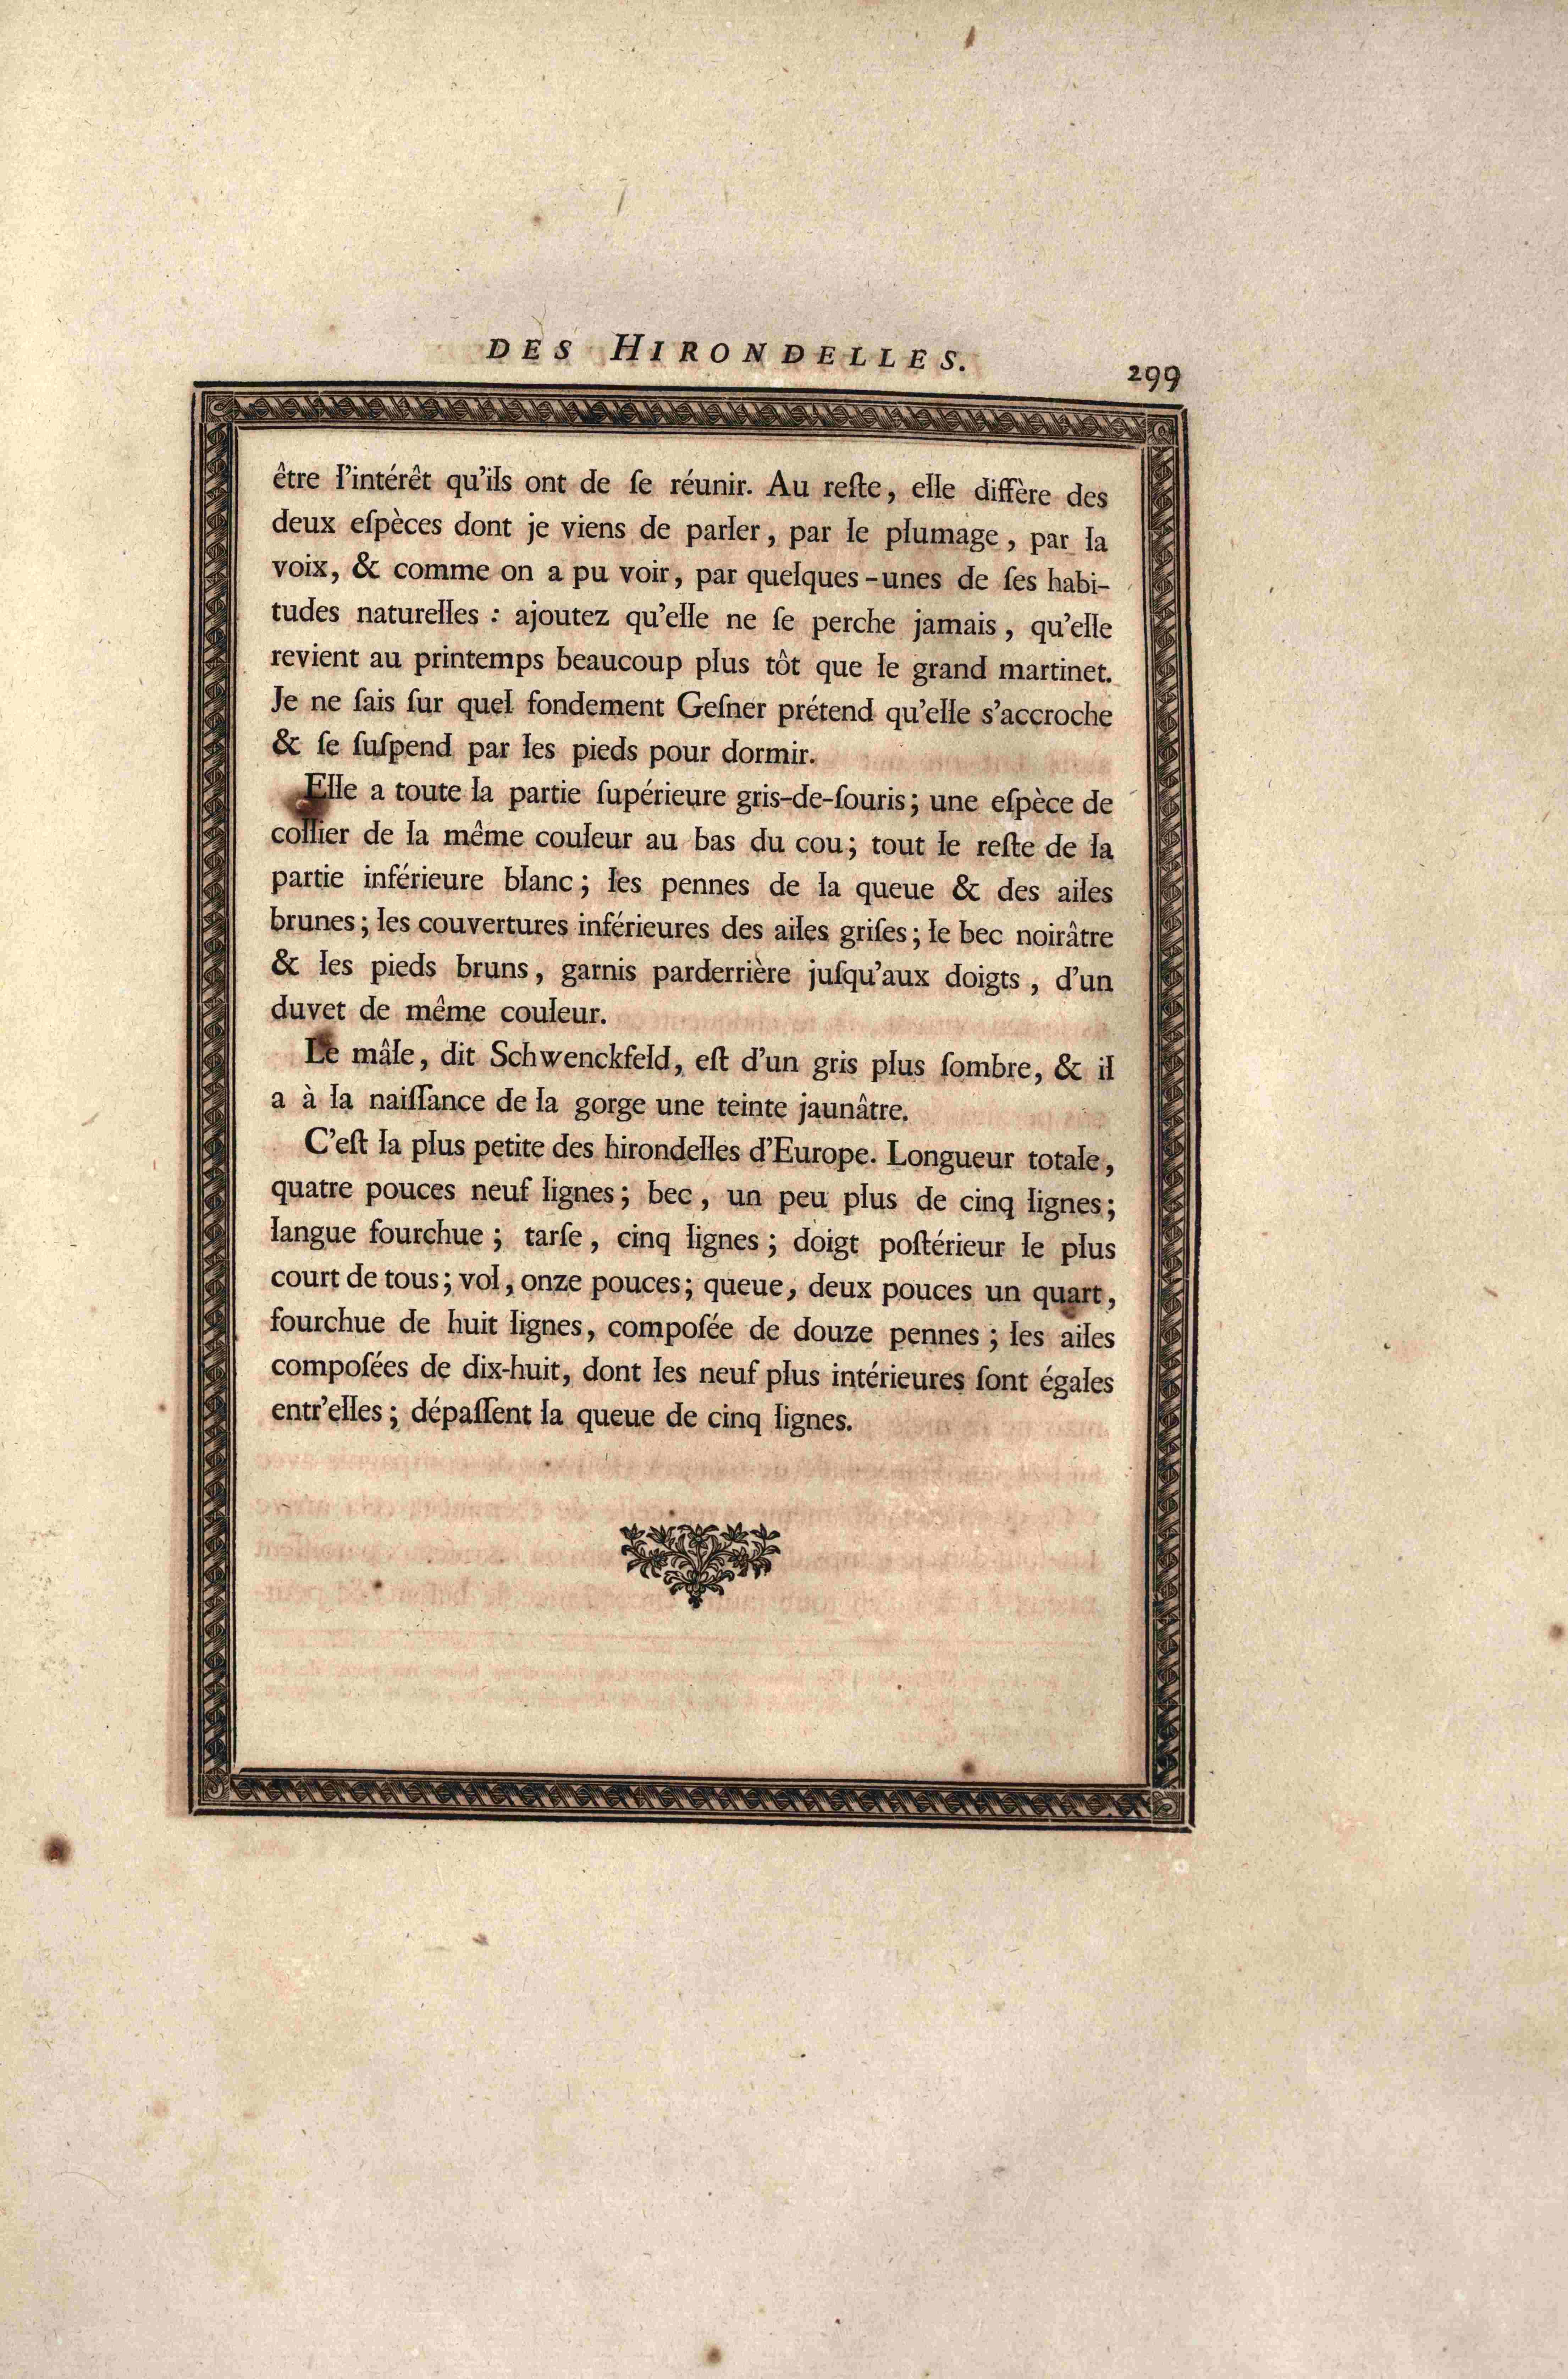 DES HIRONDELLES.
299
être l'intérêt qu'ils ont de ſe réunir. Au reſte, elle diffère des
deux eſpèces dont je viens de parler, par le plumage, par la
voix, & comme on a pu voir, par quelques-unes de ſes habi-
tudes naturelles : ajoutez qu'elle ne ſe perche jamais, qu'elle
revient au printemps beaucoup plus tôt que le grand martinet.
Je ne ſais ſur quel fondement Geſner prétend qu'elle s'accroche
& ſe ſuſpend par les pieds pour dormir.
Elle a toute la partie ſupérieure gris-de-ſouris; une eſpèce de
collier de la même couleur au bas du cou; tout le reſte de la
partie inférieure blanc; les pennes de la queue & des ailes
brunes; les couvertures inférieures des ailes griſes; le bec noirâtre
& les pieds bruns, garnis parderrière juſqu'aux doigts, d'un
duvet de même couleur.
Le mâle, dit Schwenckfeld, eſt d'un gris plus ſombre, & il
a à la naiſſance de la gorge une teinte jaunâtre.
C'eſt la plus petite des hirondelles d'Europe. Longueur totale,
quatre pouces neuf lignes; bec, un peu plus de cinq lignes;
langue fourchue; tarſe, cinq lignes; doigt poſtérieur le plus
court de tous; vol, onze pouces; queue, deux pouces un quart,
fourchue de huit lignes, compoſée de douze pennes; les ailes
compoſées de dix-huit, dont les neuf plus intérieures ſont égales
entr'elles; dépaſſent la queue de cinq lignes.